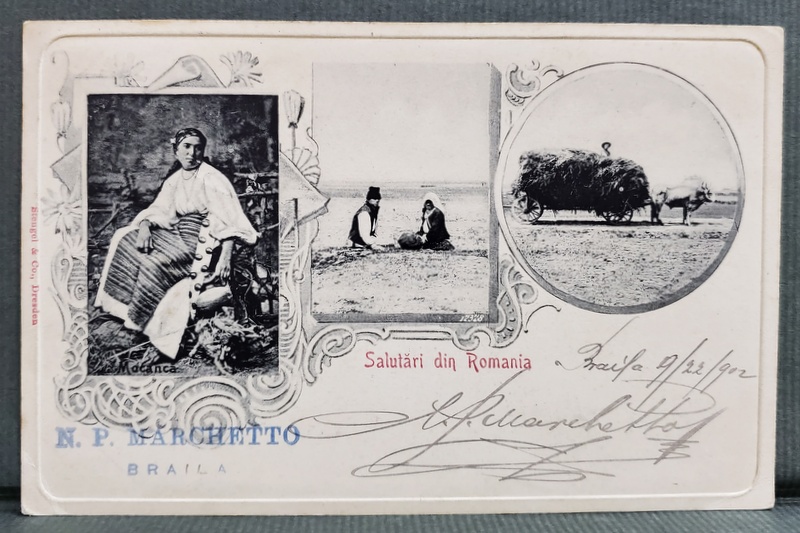 Stengel & Co., Dresden
Mocanca
12328
Salutări din Romania
Braila 9/22/902
N. P. Marchetto
N. P. MARCHETTO
BRAILA